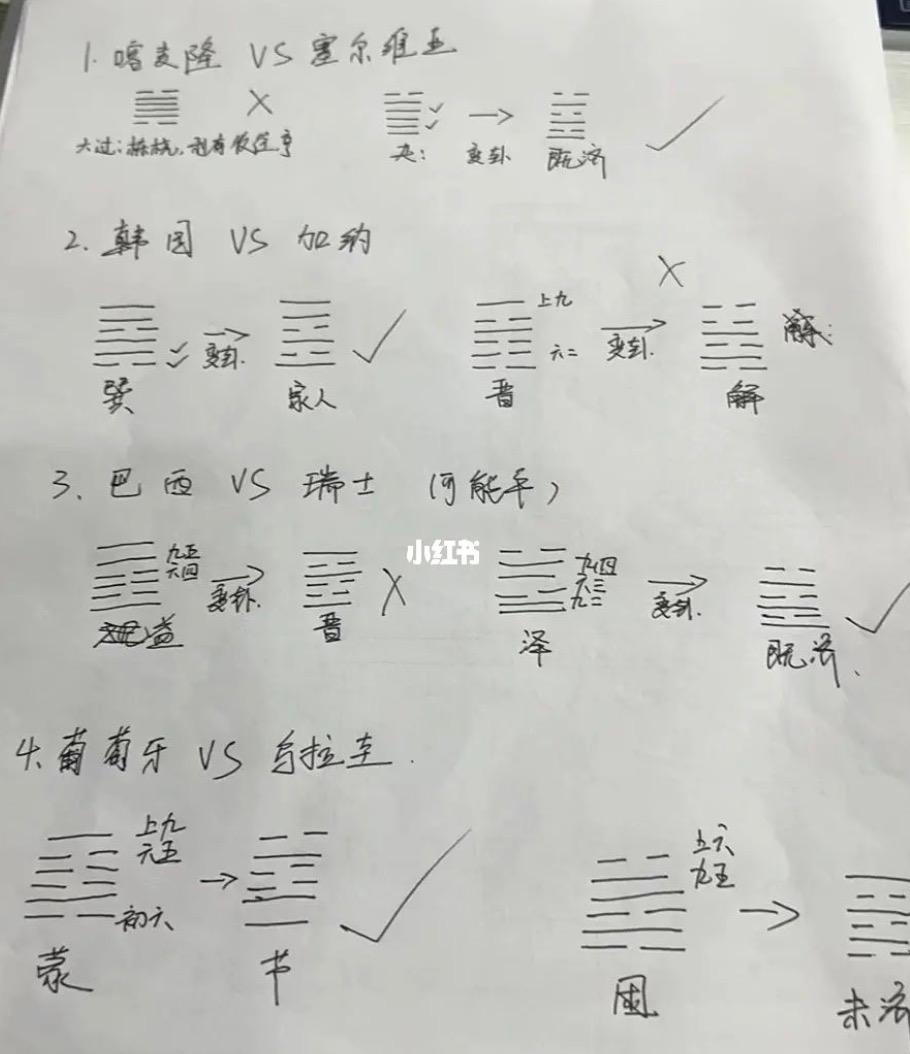 1. 喀麦隆 VS 塞尔维亚
大过: 栋桡, 利有攸往亨
夬: 变卦 既济
2. 韩国 VS 加纳
上九
六二
变卦 变卦
巽 家人 晋 解
3、巴西 VS 瑞士 (可能平)
九五 九四
六四 六三
九二
变卦 变卦
益 晋 泽 既济
小红书
4. 葡萄牙 VS 乌拉圭.
上九 上六
六五 九五
初六
蒙 节 困 未济